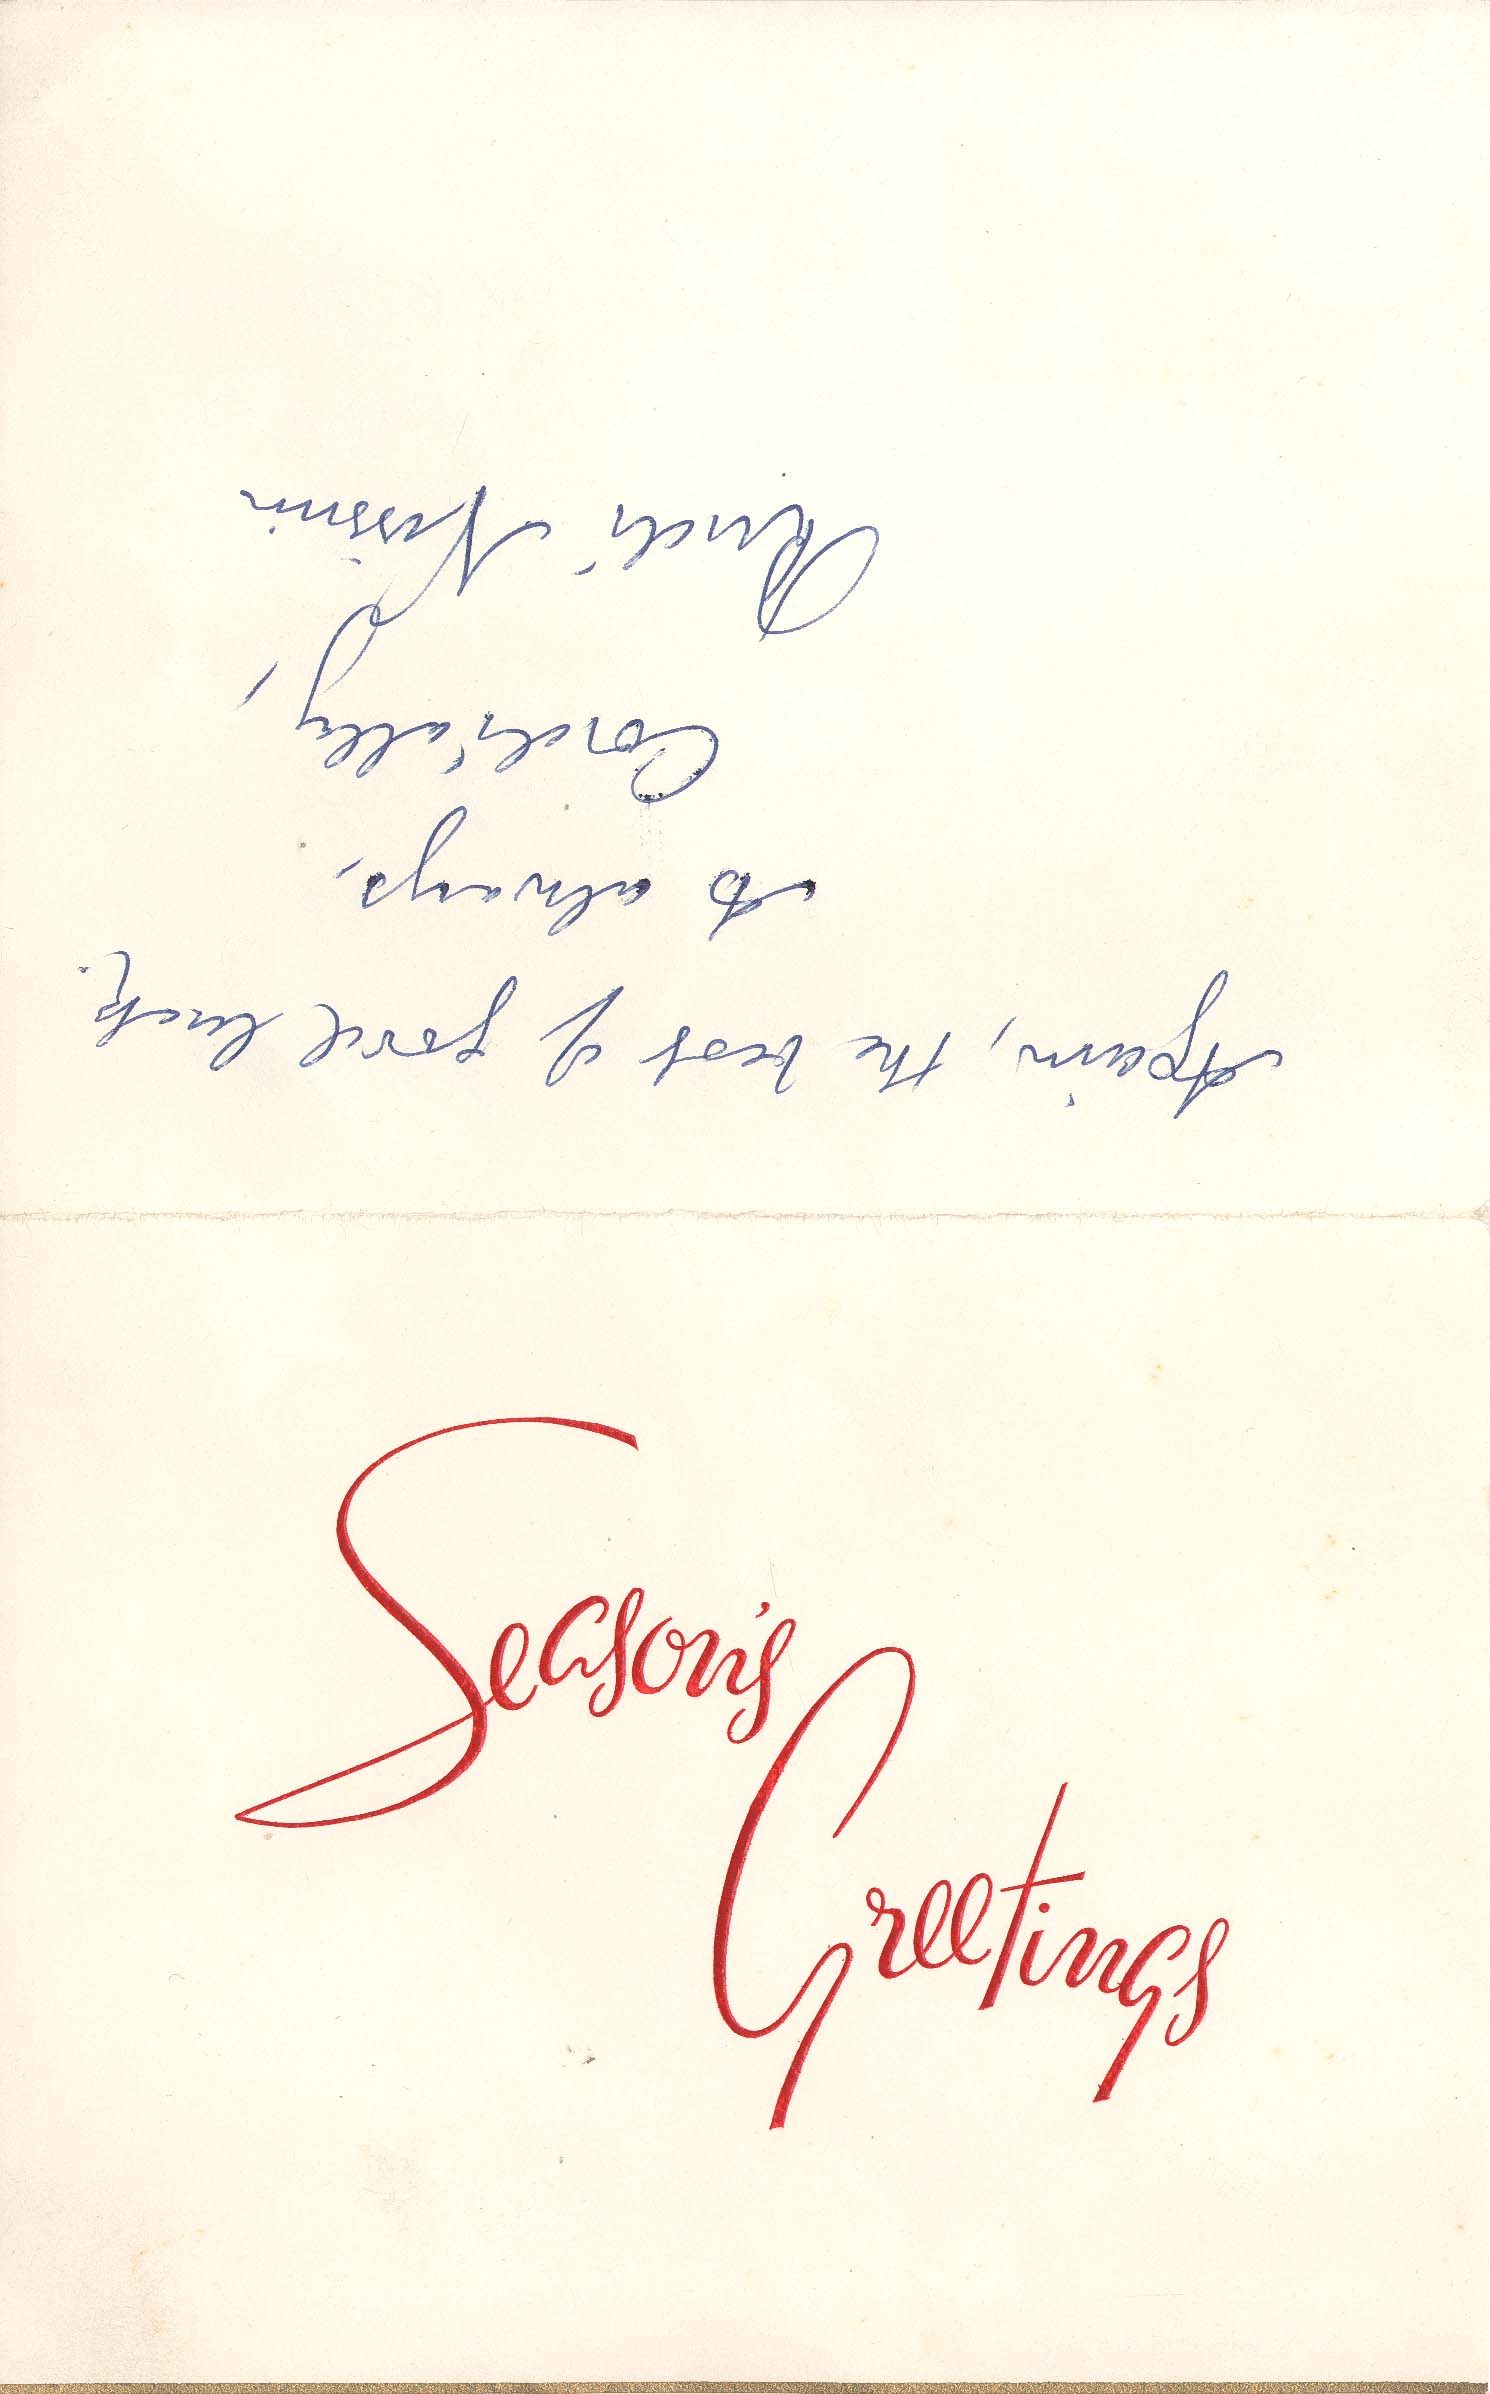 Again, the best of good luck.
As always,
Cordially,
Rudi Nissim
Season's
Greetings